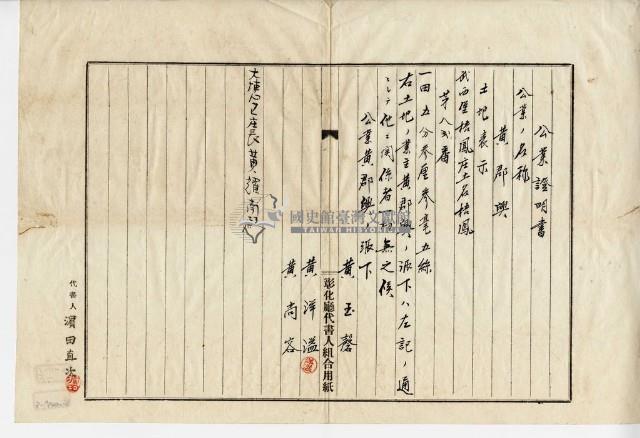 公業證明書
公業ノ名称
黄郡興
土地表示
武西堡梧鳳庄土名梧鳳
第八弍番
一田五分参厘参毫五絲
右土地ノ業主黄郡興ノ派下ハ左記ノ通
ニシテ他ニ関係者一切無之候
公業黄郡興派下
黄玉馨
黄洋溢
黄尚容
彰化廳代書人組合用紙
庄長黄耀南
代書人 濱田直次
國史館臺灣文獻館
TAIWAN HISTORICA